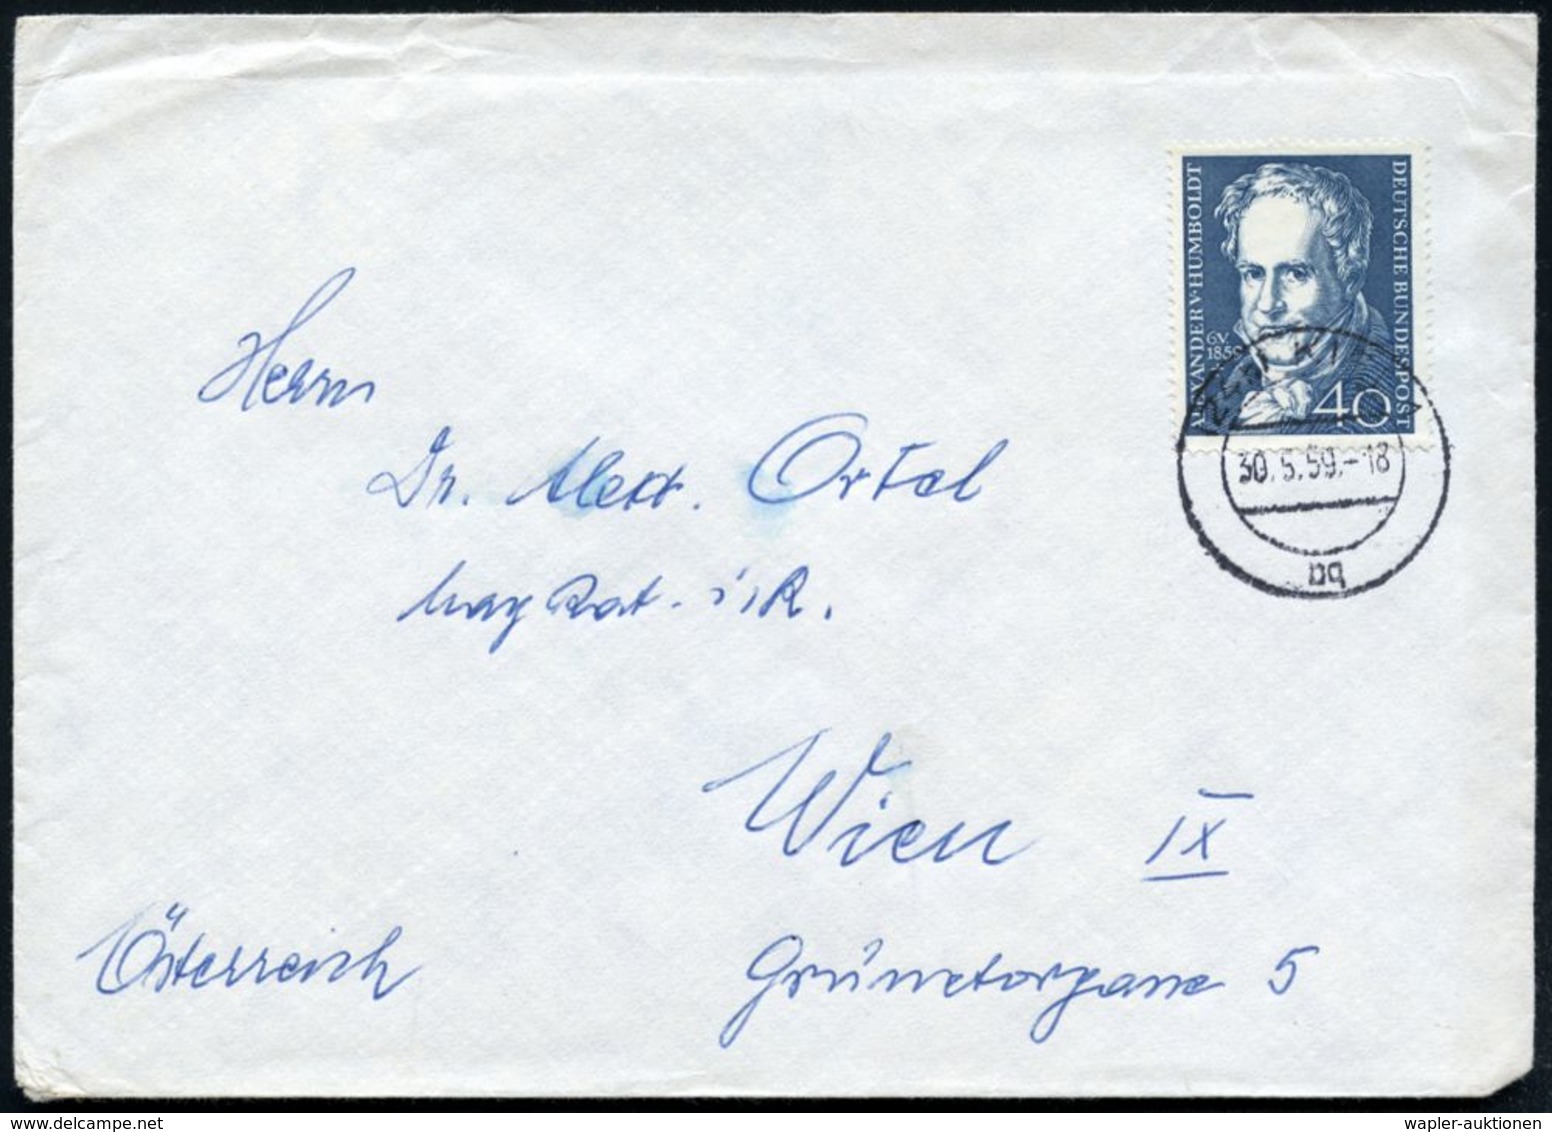 ALEXANDER V. HUMBOLDT
DEUTSCHE BUNDESPOST
6.V.
1859
40
30.5.59.-18
Herrn
Dr. Alex. Ortel
Mag Rat. i. R.
Wien IX
Österreich
Grünetorgasse 5
wapler-auktionen